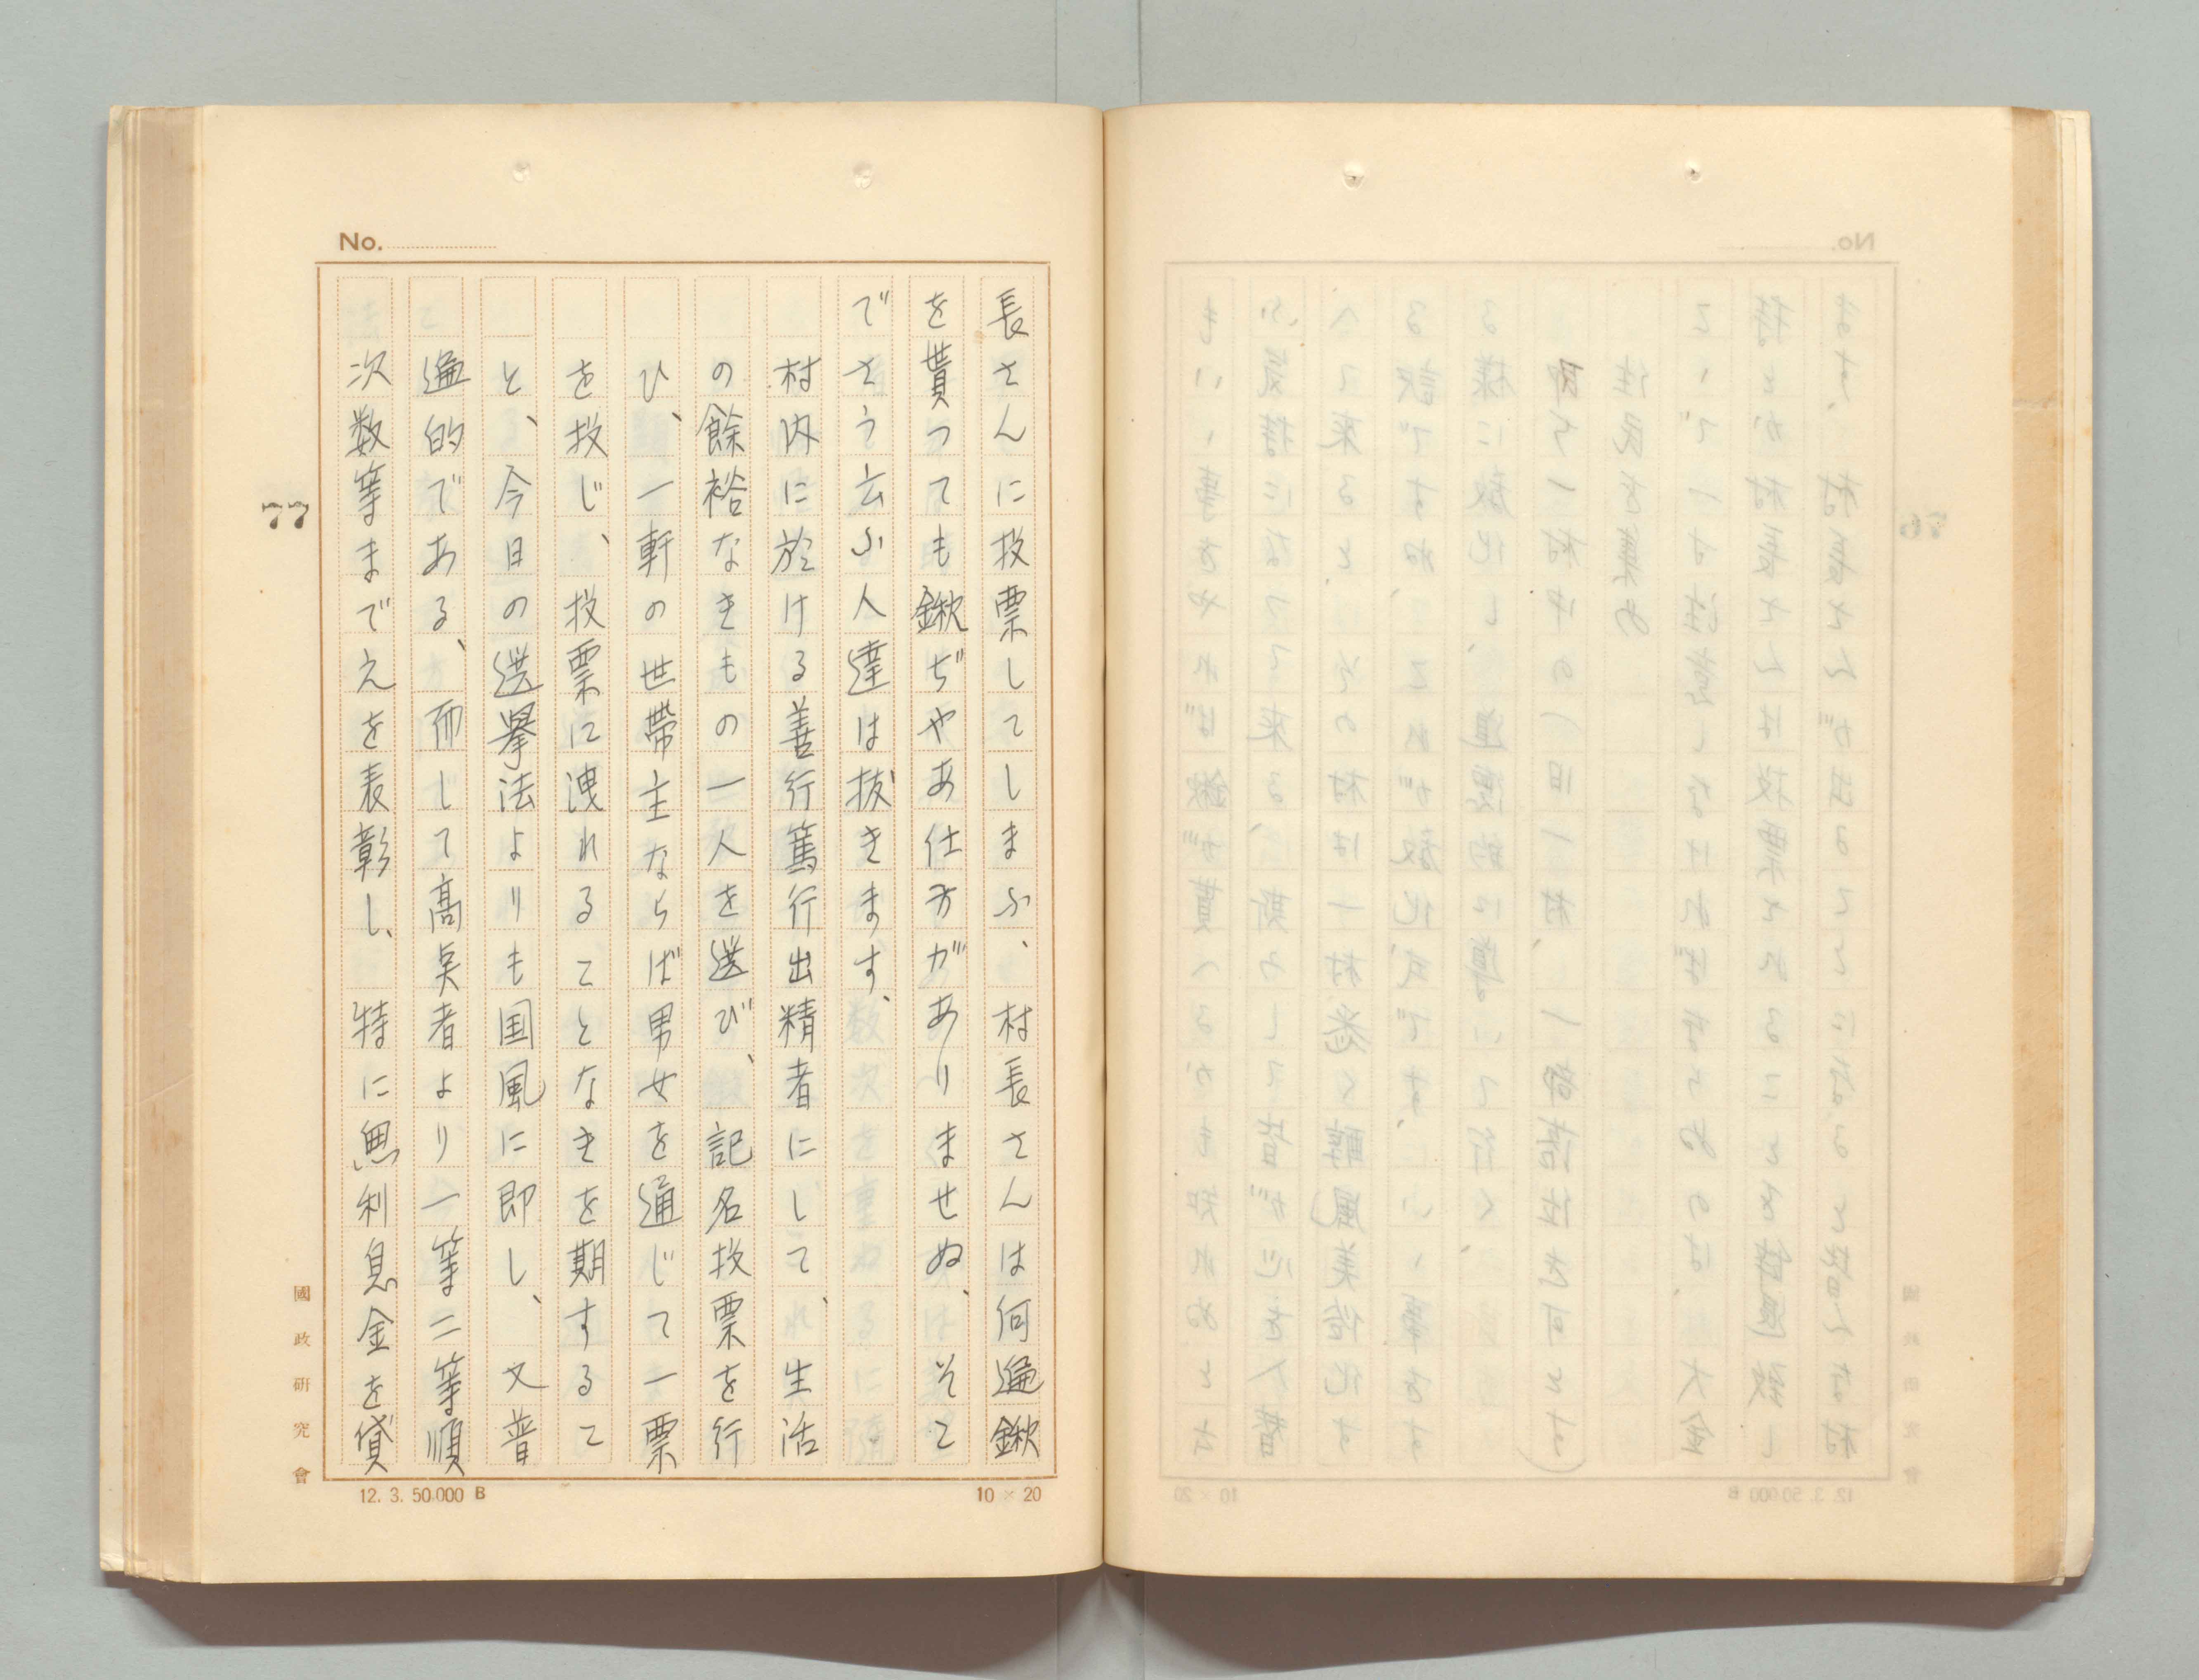 No.
長さんに投票してしまふ、村長さんは何遍鍬
を貰つても鍬ぢやあ仕方がありませぬ、そこ
でさう云ふ人達は抜きます、
村内に於ける善行篤行出精者にして、生活
の餘裕なきもの一人を選び、記名投票を行
ひ、一軒の世帶主ならば男女を通じて一票
を投じ、投票に洩れることなきを期するこ
と、今日の選擧法よりも国風に即し、又普
遍的である、而して高点者より一等二等順
次数等までえを表彰し、特に無利息金を貸
77
國政研究會
12. 3. 50.000 B
10 × 20